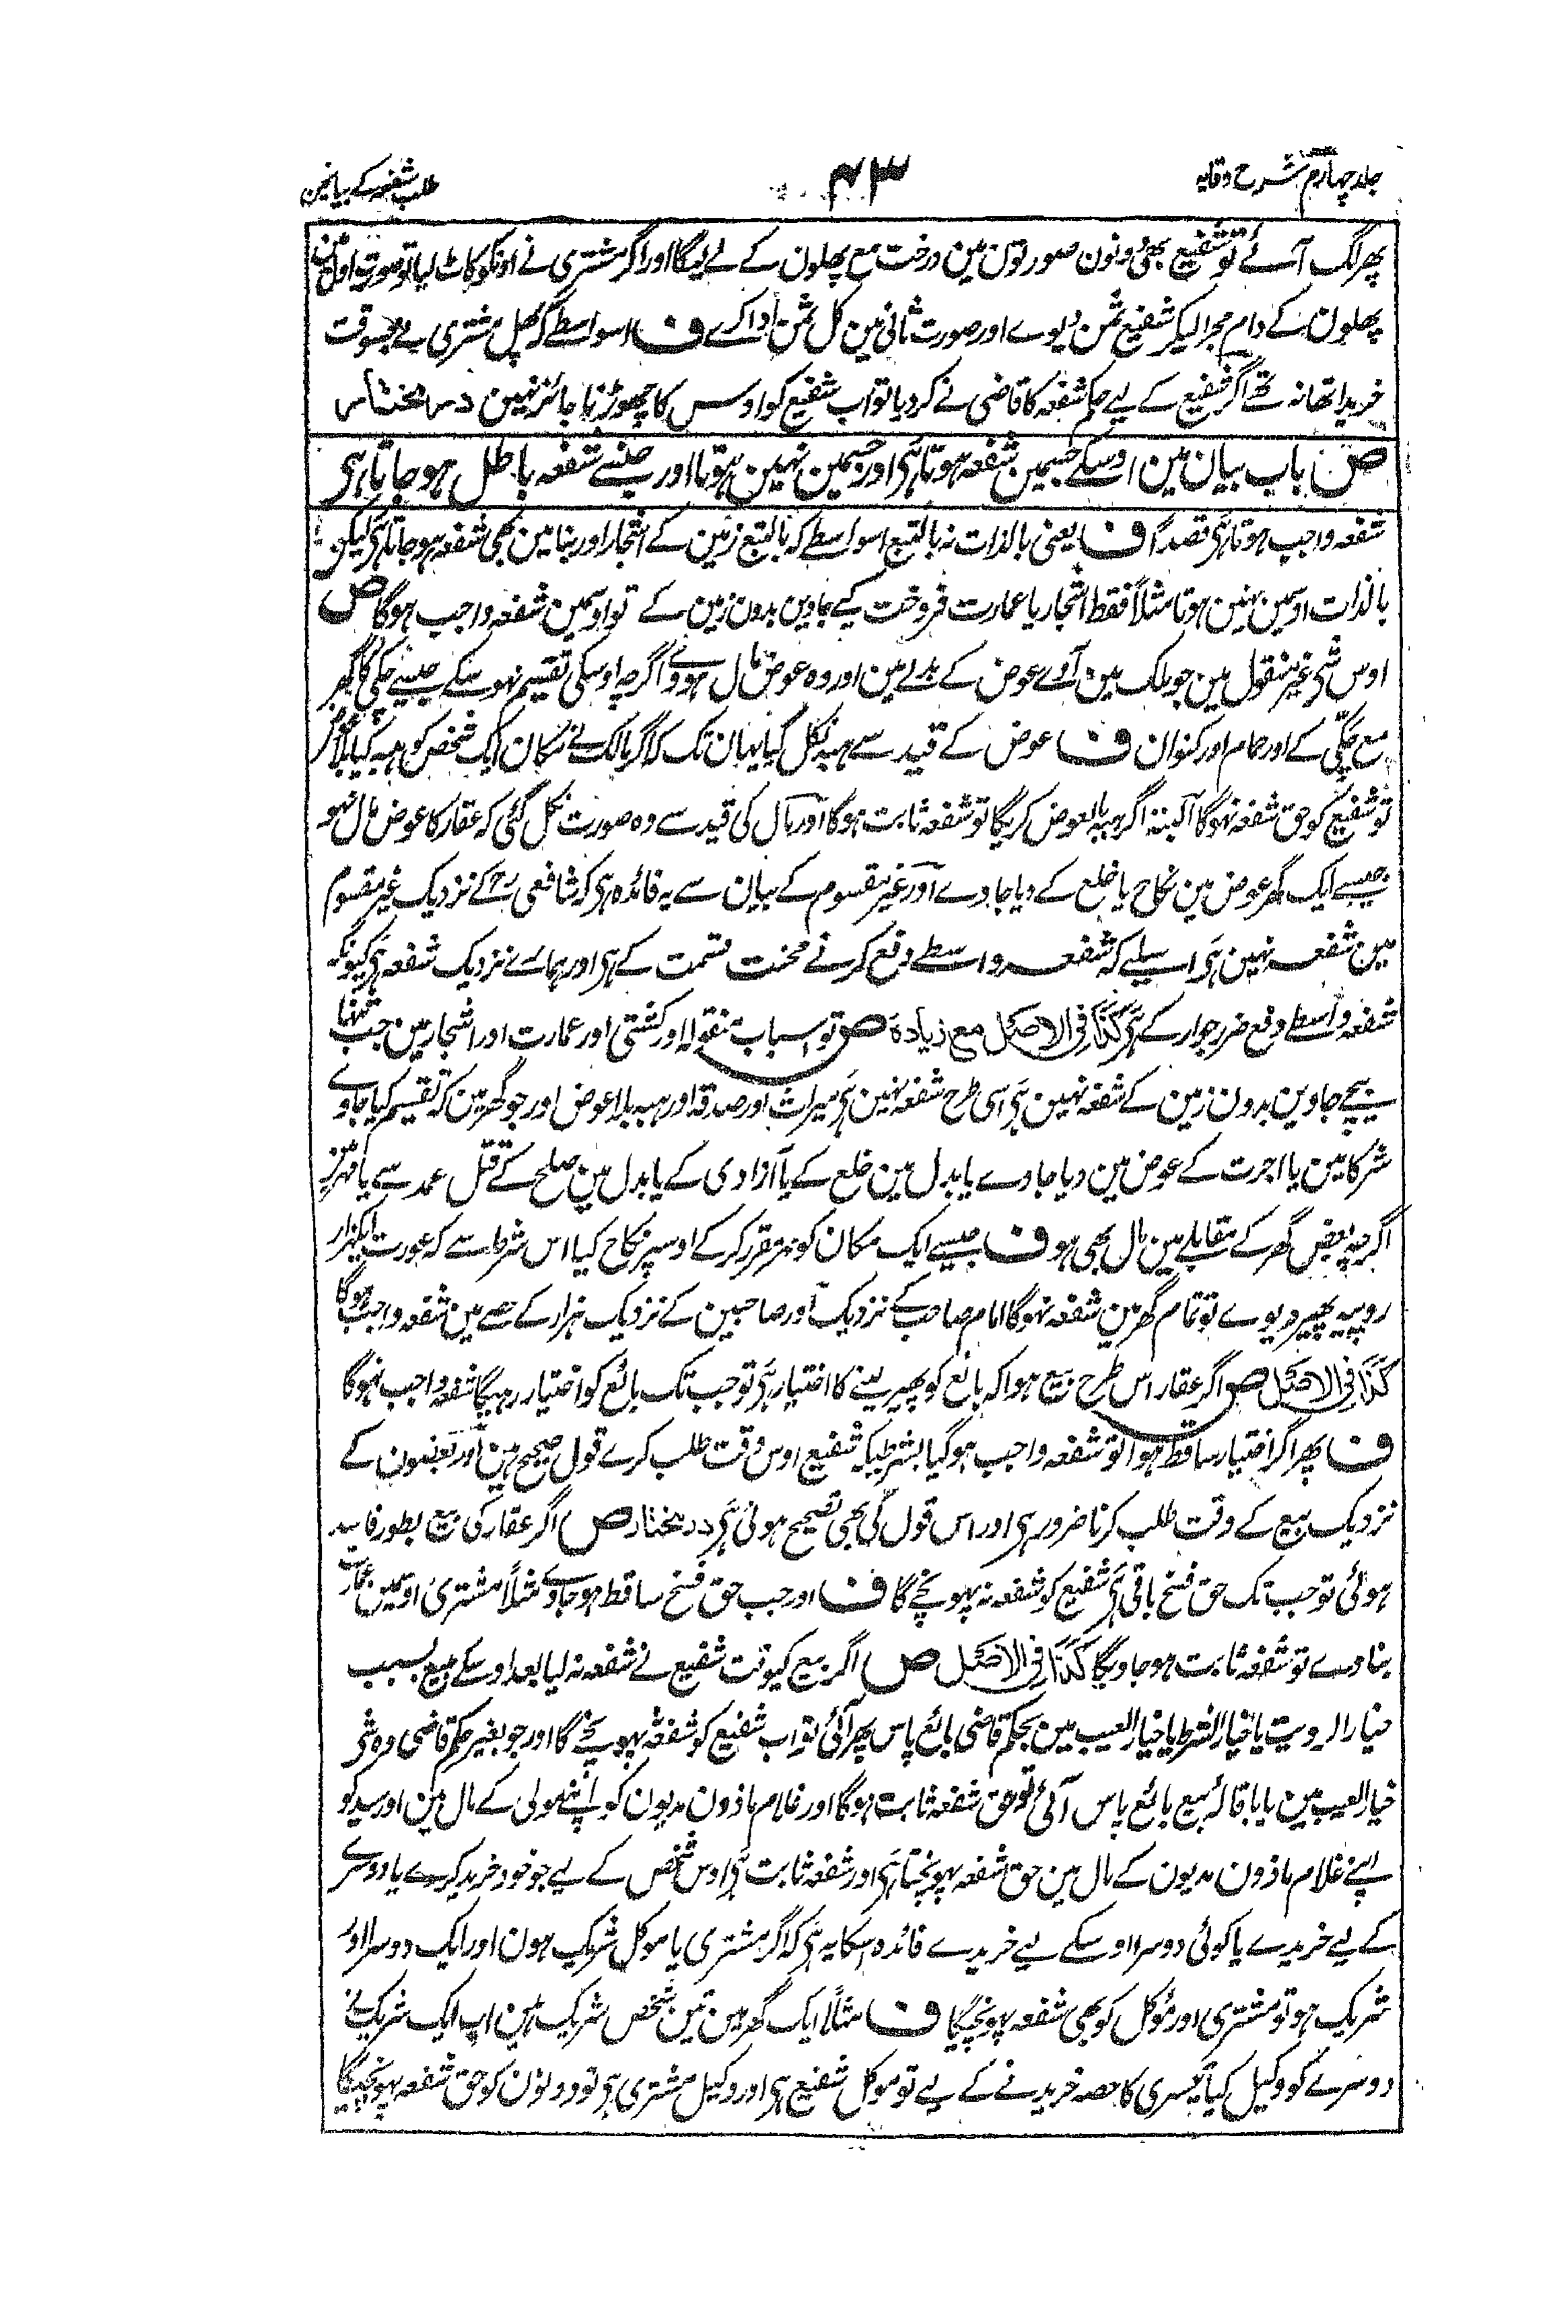 جلد چہارم شرح وقایہ
۷۳
طلب شفعہ کے بیانمین
پھر لگ آئے تو شفیع بھی دونون صورتون مین درخت مع پھلون کے لے لیگا اور اگر مشتری نے اونکو کاٹ لیا تو صورت اول مین
پھلون کے دام مجرا لیکر شفیع ثمن دیوے اور صورت ثانی مین کل ثمن ادا کرے ف اسواسطے کہ پھل مشتری نے جسوقت
خریدا تھا نہ تھے اگر شفیع کے لیے حکم شفعہ کا قاضی نے کر دیا تو اب شفیع کو اوس کا چھوڑنا جائز نہین در مختار
ص باب بیان مین اوسکے جسمین شفعہ ہوتا ہی اور جسمین نہین ہوتا اور جنسے شفعہ باطل ہو جاتا ہی
شفعہ واجب ہوتا ہی قصداً ف یعنی بالذات نہ بالتبع اسواسطے کہ بالتبع زمین کے اشجار اور بنا مین بھی شفعہ ہو جاتا ہی لیکن
بالذات اوسمین نہین ہوتا مثلاً فقط اشجار یا عمارت فروخت کیے جاوین بدون زمین کے تو اوسمین شفعہ واجب ہوگا ص
اوس شی غیر منقول مین جو ملک مین آوے عوض کے بدلے مین اور وہ عوض مال ہووے اگرچہ اوسکی تقسیم نہو سکے جیسے چکی کا گھر
مع چکی کے اور حمام اور کنوان ف عوض کے قید سے ہبہ نکل گیا یہان تک کہ اگر مالک نے مکان ایک شخص کو ہبہ کیا بلا عوض
تو شفیع کو حق شفعہ نہوگا البتہ اگر ہبہ بالعوض کریگا تو شفعہ ثابت ہوگا اور مال کی قید سے وہ صورت نکل گئی کہ عقار کا عوض مال نہو
جیسے ایک گھر عوض مین نکاح یا خلع کے دیا جاوے اور غیر مقسوم کے بیان سے یہ فائدہ ہی کہ شافعی رح کے نزدیک غیر مقسوم
مین شفعہ نہین ہی اسلیے کہ شفعہ واسطے دفع کرنے محنت قسمت کے ہی اور ہمارے نزدیک شفعہ ہی کیونکہ
شفعہ واسطے دفع ضرر جوار کے ہی کذا فی الاصل مع زیادۃ ص تو اسباب منقولہ اور کشتی اور عمارت اور اشجار مین جب تنہا
بیچے جاوین بدون زمین کے شفعہ نہین ہی اسی طرح شفعہ نہین ہی میراث اور صدقہ اور ہبہ بلا عوض اور جو گھر مین کہ تقسیم کیا جاوے
شرکا مین یا اجرت کے عوض مین دیا جاوے یا بدل مین خلع کے یا آزادی کے یا بدل مین صلح کے قتل عمد سے یا مہر مین
اگرچہ بعض گھر کے مقابلے مین مال بھی ہو ف جیسے ایک مکان کو مہر مقرر کر کے اوسپر نکاح کیا اس شرط سے کہ عورت ایکہزار
روپیہ پھیر دیوے تو تمام گھر مین شفعہ نہوگا امام صاحب کے نزدیک اور صاحبین کے نزدیک ہزار کے حصے مین شفعہ واجب ہوگا
کذا فی الاصل ص اگر عقار اس طرح بیع ہوا کہ بائع کو پھیر لینے کا اختیار ہی تو جب تک بائع کو اختیار رہیگا شفعہ واجب نہوگا
ف پھر اگر اختیار ساقط ہوا تو شفعہ واجب ہو گیا بشرطیکہ شفیع اوس وقت طلب کرے قول صحیح مین اور بعضون کے
نزدیک بیع کے وقت طلب کرنا ضرور ہی اور اس قول کی بھی تصحیح ہوئی ہی در مختار ص اگر عقار کی بیع بطور فاسد
ہوئی تو جب تک حق فسخ باقی ہی شفیع کو شفعہ نہ پہونچے گا ف اور جب حق فسخ ساقط ہو جاوے مثلاً مشتری اوسمین عمارت
بنا دے تو شفعہ ثابت ہو جاویگا کذا فی الاصل ص اگر بیع کیوقت شفیع نے شفعہ نہ لیا بعد اوسکے مبیع بسبب
خیار الرویت یا خیار الشرط یا خیار العیب مین بحکم قاضی بائع پاس پھر آئی تو اب شفیع کو شفعہ نہ پہونچے گا اور جو بغیر حکم قاضی وہ شی
خیار العیب مین یا باقالہ بیع بائع پاس آئی تو حق شفعہ ثابت ہوگا اور غلام ماذون مدیون کو اپنے مولی کے مال مین اور سید کو
اپنے غلام ماذون مدیون کے مال مین حق شفعہ پہونچتا ہی اور شفعہ ثابت ہی اوس شخص کے لیے جو خود خرید کرے یا دوسرے
کے لیے خریدے یا کوئی دوسرا اوسکے لیے خریدے فائدہ اسکا یہ ہی کہ اگر مشتری یا موکل شریک ہون اور ایک دوسرا اور
شریک ہو تو مشتری اور موکل کو بھی شفعہ پہونچیگا ف مثلاً ایک گھر مین تین شخص شریک ہین اب ایک شریک نے
دوسرے کو وکیل کیا تیسری کا حصہ خریدنے کے لیے تو موکل شفیع ہی اور وکیل مشتری ہی تو دونون کو حق شفعہ پہونچیگا